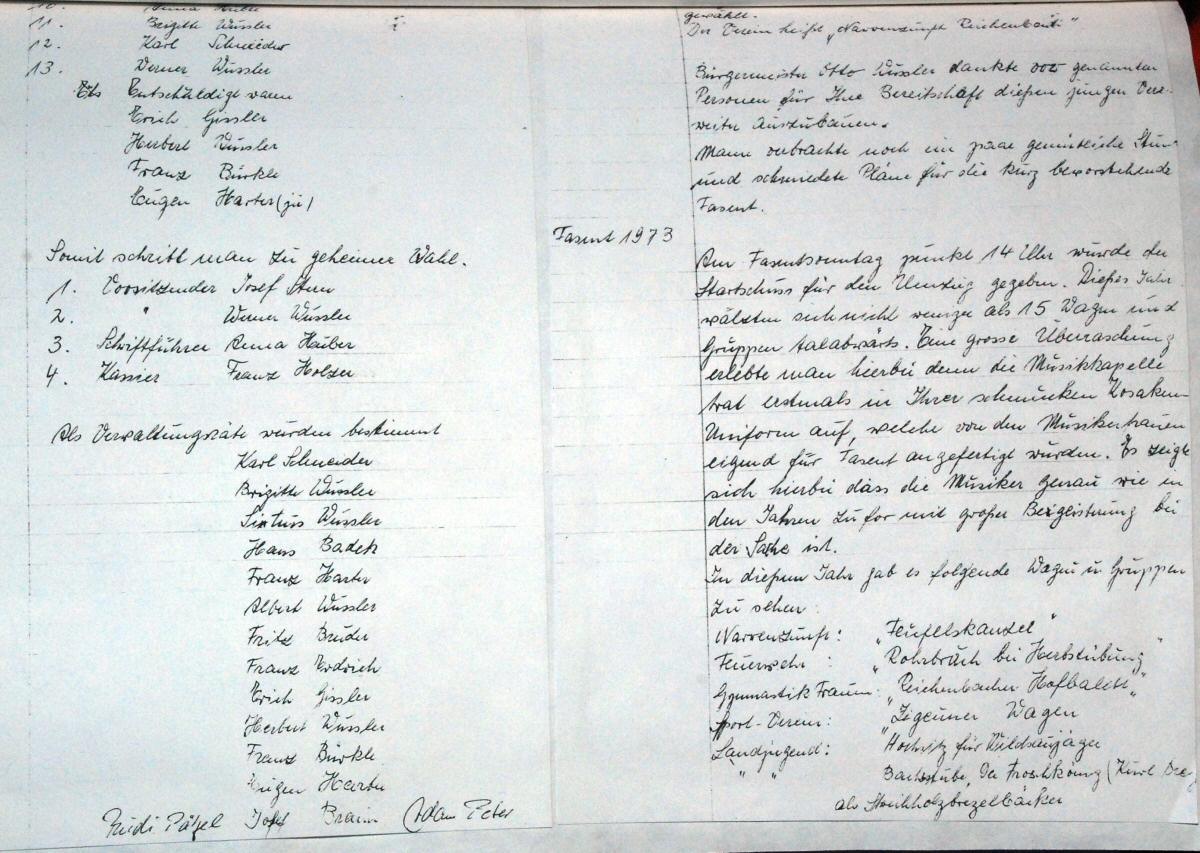 11. Brigitte Wussler
12. Karl Schneider
13. Werner Wussler
Entschuldigt waren
Erich Gissler
Herbert Wussler
Franz Bürkle
Eugen Harter (jü)
Somit schritt man zu geheimer Wahl.
1. Voositzender Josef Stern
2. " Werner Wussler
3. Schriftführer Anna Haiber
4. Kassier Franz Holzer
Als Verwaltungsräte wurden bestimmt
Karl Schneider
Brigitte Wussler
Sixtus Wussler
Hans Badek
Franz Harter
Albert Wussler
Fritz Bruder
Franz Erdrich
Erich Gissler
Herbert Wussler
Franz Bürkle
Eugen Harter
Rudi Josef Braun Adam Peter
gewählt.
Der Verein heißt „Narrenzunft Reichenbach"
Bürgermeister Otto Wussler dankte vor genannten
Personen für Ihre Bereitschaft dießen jungen
weiter Auszubauen.
Mann verbrachte noch ein paar gemütliche
und schmiedete Pläne für die kurz bevorstehende
Fasent.
Fasent 1973
Am Fasentsonntag punkt 14 Uhr wurde der
Startschuss für den Umzug gegeben. Dießes Jahr
wälzten sich nicht weniger als 15 Wagen und
Gruppen talabwärts. Eine grosse Überraschung
erlebte man hierbei denn die Musikkapelle
trat erstmals in Ihrer schmucken Kosaken
Uniform auf, welche von den Musikerfrauen
eigend für Fasent angefertigt wurden. Es zeigte
sich hierbei dass die Musiker genau wie in
den Jahren zufor mit großer Beigeisterung bei
der Sache ist.
In dießem Jahr gab es folgende Wagen u Gruppen
zu sehen:
Narrenzunft: „Teufelskanzel"
Feuerwehr: „Rohrbruch bei Herbstübung"
Gymnastik Frauen: „Reichenbacher Hofballett"
Sport-Verein: „Zigeuner Wagen
Landjugend: Hochsitz für Wildsaujäger
" " Backstube, Der Froschkönig (Kurl
als Streichholzbrezelbäcker